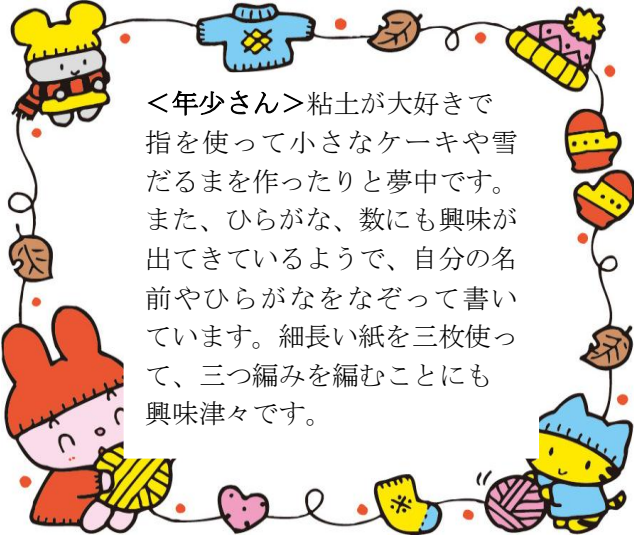 ＜年少さん＞粘土が大好きで
指を使って小さなケーキや雪
だるまを作ったりと夢中です。
また、ひらがな、数にも興味が
出てきているようで、自分の名
前やひらがなをなぞって書い
ています。細長い紙を三枚使っ
て、三つ編みを編むことにも
興味津々です。